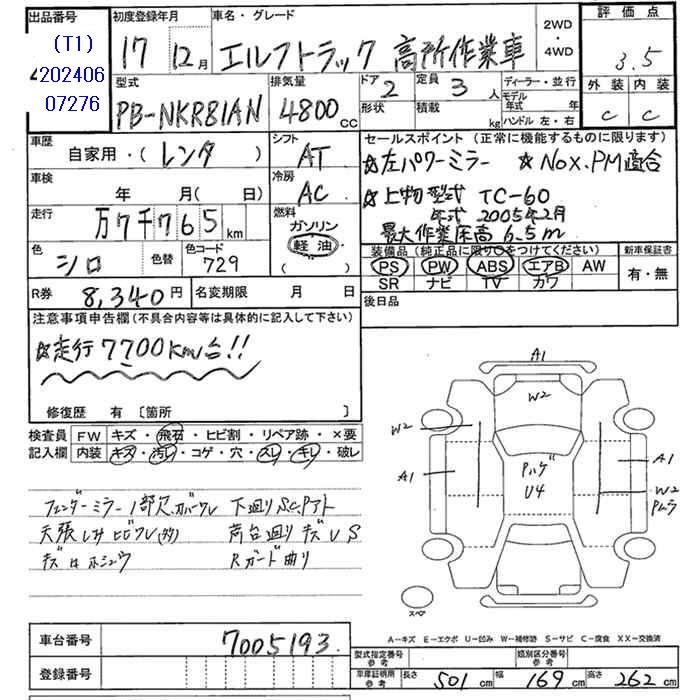 出品番号
(T1)
202406
07276
初度登録年月
17 12月
車名・グレード
エルフトラック 高所作業車
2WD
・
4WD
評価点
3.5
型式
PB-NKR81AN
排気量
4800CC
ドア
2
形状
定員
3人
積載
kg
ディーラー・並行
モデル
年式 年
ハンドル 左・右
外装 内装
C C
車歴
自家用・(レンタ)
シフト
AT
車検
年 月(日)
冷房
AC
走行
万7千765km
燃料
ガソリン
軽油
( )
色
シロ
色替
色コード
729
R券
8,340円
名変期限 月 日
セールスポイント(正常に機能するものに限ります)
☆左パワーミラー ☆NOX.PM適合
☆上物型式 TC-60
年式 2005年2月
最大作業床高 6.5m
装備品(純正品に限り○をつけてください)
PS PW ABS エアB AW
SR ナビ TV カワ
新車保証書
有・無
後日品
注意事項申告欄(不具合内容等は具体的に記入して下さい)
☆走行7700Km台!!
修復歴 有 [箇所 ]
検査員
記入欄
FW キズ・飛石・ヒビ割・リペア跡・×要
内装 キズ・汚レ・コゲ・穴・スレ・キレ・破レ
フェンダーミラー1部欠、カバーワレ 下廻りS.C.Pアト
天張しみ ヒビワレ(多)
荷台廻りキズUS
キズ 
ホシュウ
Rガード曲り
A1
W2
W2
A1
Pハゲ
U4
A1
W2
Pムラ
スペア
A-キズ E-エクボ U-凹み W-補修跡 S-サビ C-腐食 XX-交換済
車台番号
7005193
登録番号
型式指定番号
参考
類別区分番号
参考
車庫証明用
参考
長さ 501cm 幅 169cm 高さ 262cm